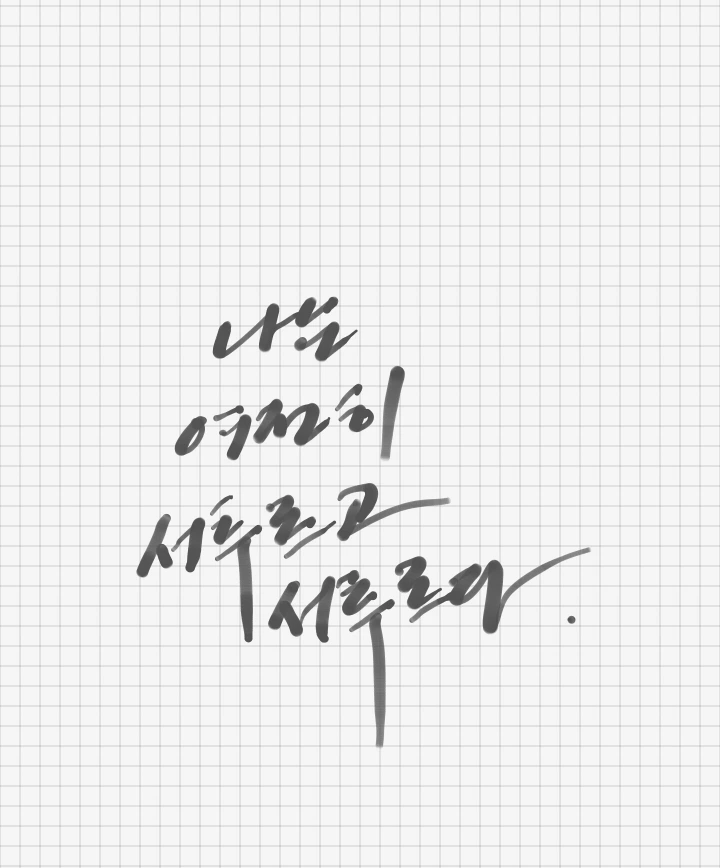 나는
여전히
서투르고
서투르다.